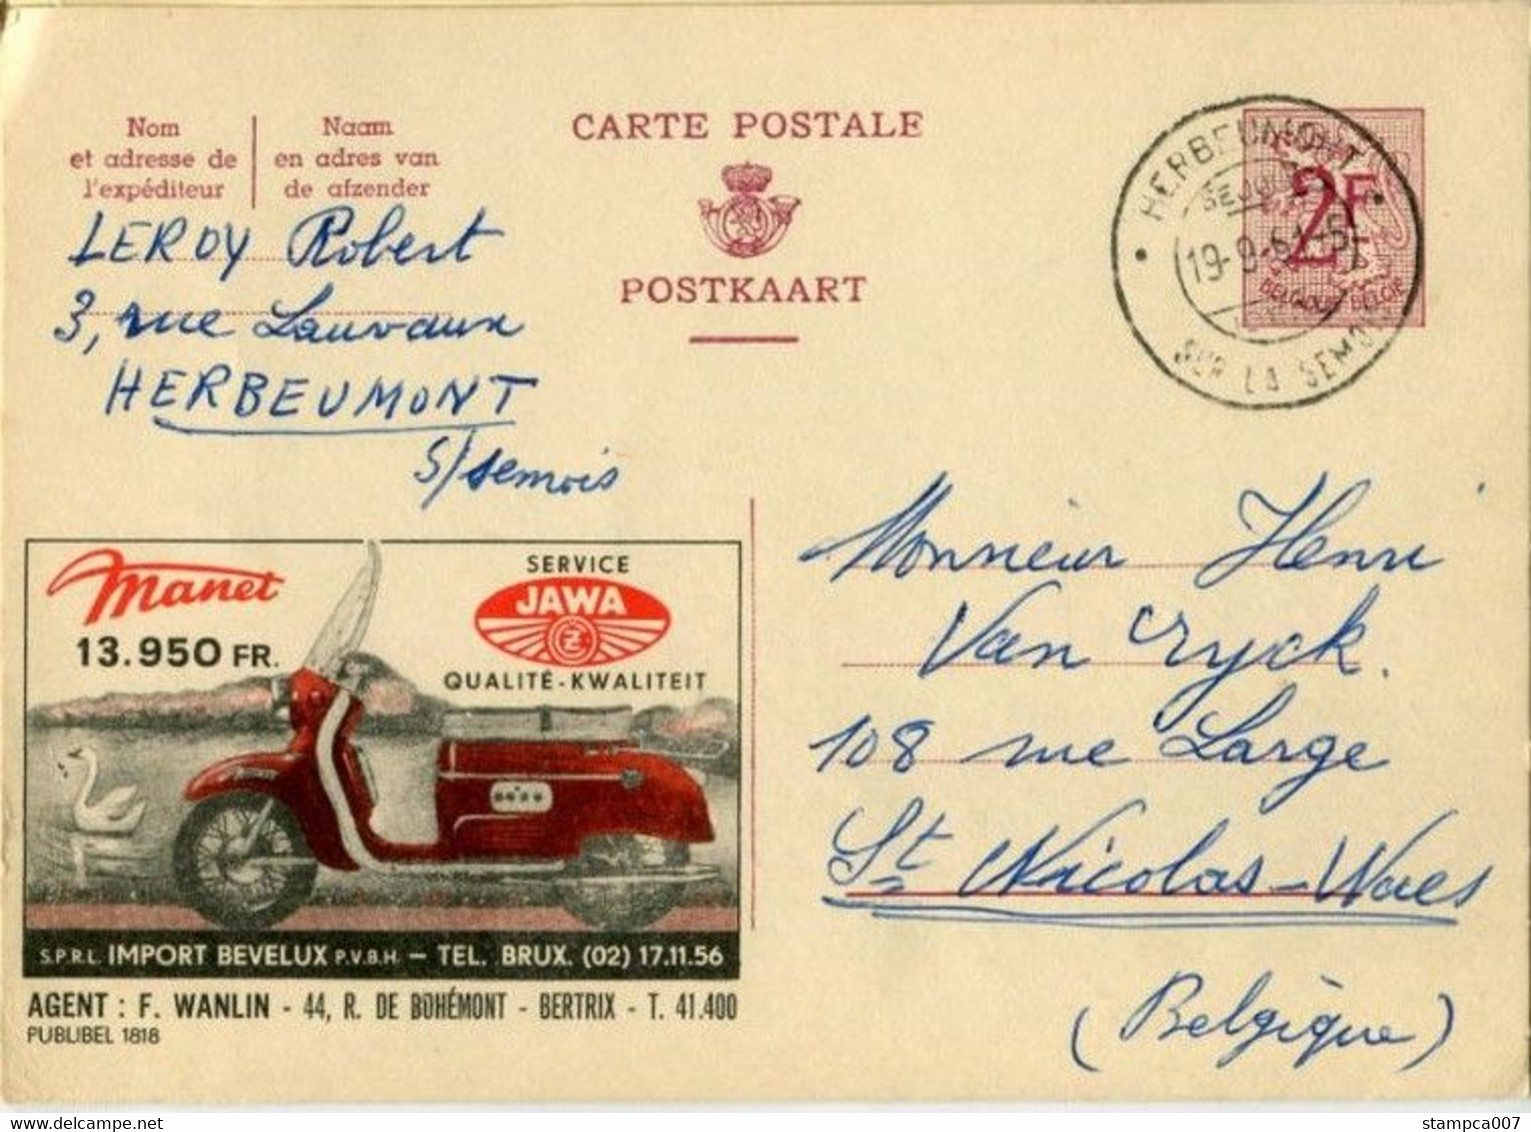 Nom
et adresse de
l'expéditeur
Naam
en adres van
de afzender
CARTE POSTALE
POSTKAART
HERBEUMONT
SUR LA SEMOIS
2F
BELGIQUE BELGIË
LEROY Robert
3, rue Lauvaux
HERBEUMONT
s/semois
Monsieur Henri
Van Eryck.
108 rue Large
St Nicolas-Waes
(Belgique)
Manet
13.950 FR.
SERVICE
JAWA
CZ
QUALITÉ-KWALITEIT
S.P.R.L. IMPORT BEVELUX P.V.B.H. — TEL. BRUX. (02) 17.11.56
AGENT : F. WANLIN - 44, R. DE BOHÉMONT - BERTRIX - T. 41.400
PUBLIBEL 1818
www.delcampe.net
stampca007